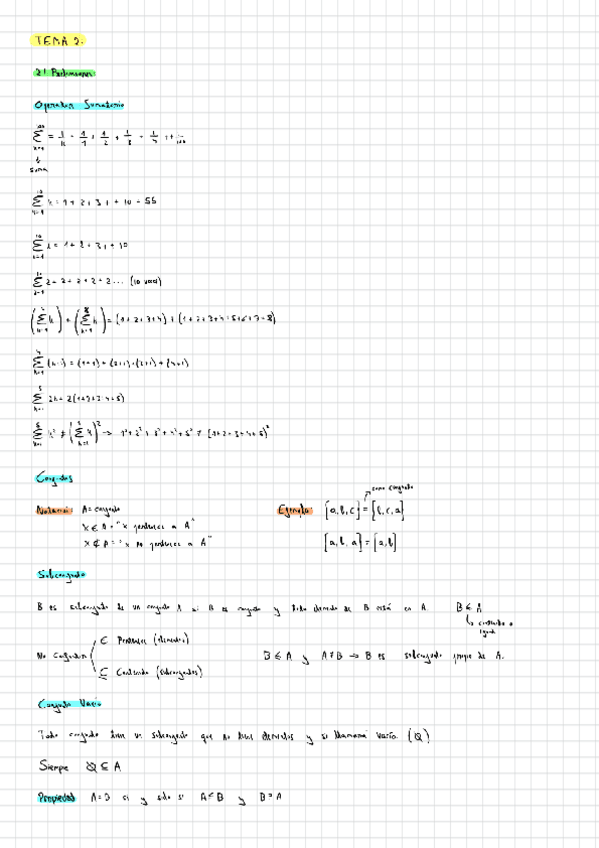 TEMA 2.
2.1 Preliminares
Operador Sumatorio
∑ = 1/k = 1/1 + 1/2 + 1/3 + 1/4 + ... 1/100
suma
∑ k = 1 + 2 + 3 + + 10 = 55
∑ i = 1 + 2 + 3 + + 10
∑ 2 = 2 + 2 + 2 + 2 ... (10 veces)
(∑ k) + (∑ k) = (1+2+3+4) + (1+2+3+4+5+6+7+8)
∑ (k+1) = (1+1) + (2+1) + (3+1) + (4+1)
∑ 2k = 2(1+2+3+4+5)
∑ k² ≠ (∑ k)² → 1² + 2² + 3² + 4² + 5² ≠ (1+2+3+4+5)²
Conjuntos
Notación A = conjunto
x ∈ A = "x pertenece a A"
x ∉ A = "x no pertenece a A"
Ejemplo {a,b,c} = {b,c,a}
mismo conjunto
{a,b,a} = {a,b}
Subconjunto
B es subconjunto de un conjunto A si B es conjunto y todo elemento de B está en A. B ⊆ A
contenido o igual
No confundir
∈ Pertenece (elementos)
⊆ Contenido (subconjuntos)
B ⊆ A y A ≠ B → B es subconjunto propio de A.
Conjunto Vacío
Todo conjunto tiene un subconjunto que no tiene elementos y se llamará vacío (∅)
Siempre ∅ ⊆ A
Propiedad A = B si y solo si A ⊆ B y B ⊆ A